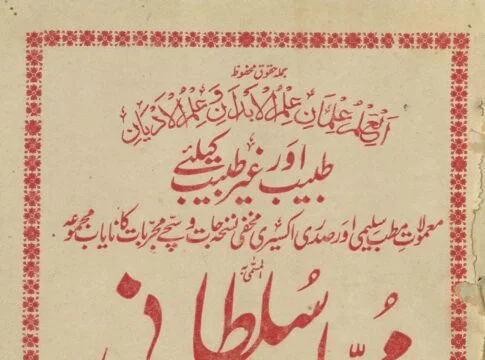 جملہ حقوق محفوظ
اَلْعِلْمُ عِلْمَانِ عِلْمُ الْاَبْدَانِ وَعِلْمُ الْاَدْیَانِ
طبیب اور غیر طبیب کیلئے
معمولات مطب سلیمی اور صدری اکسیری مخفی نسخہ جات و سچے مجربات کا نایاب مجموعہ
المسمٰی بہ
سُلطانی